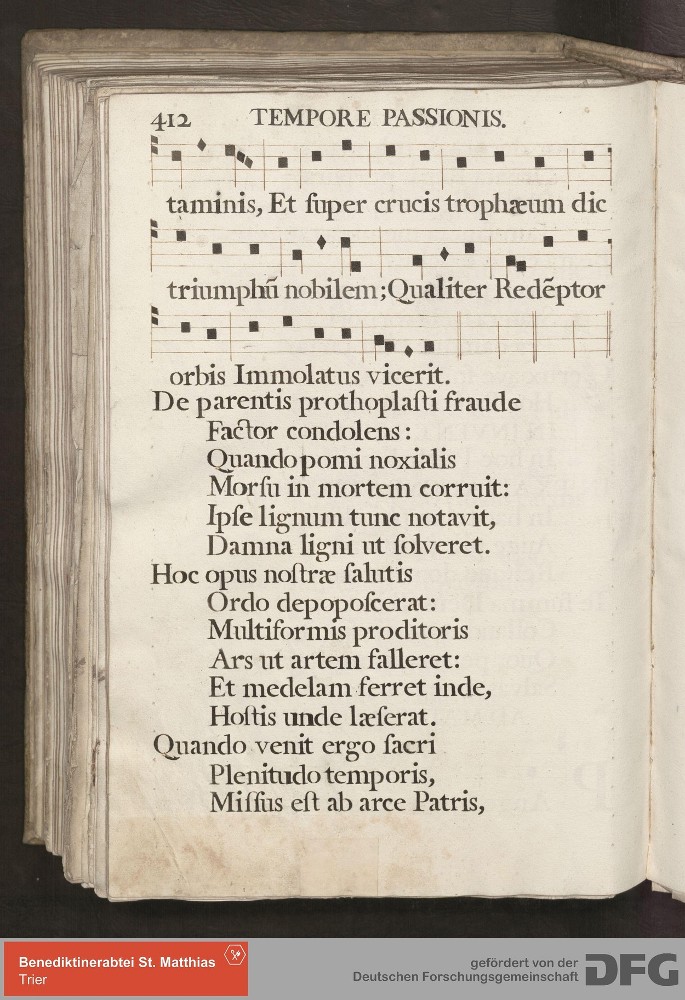 412 TEMPORE PASSIONIS.
taminis, Et ſuper crucis trophæum dic
triumphū nobilem; Qualiter Redēptor
orbis Immolatus vicerit.
De parentis prothoplaſti fraude
Factor condolens:
Quando pomi noxialis
Morſu in mortem corruit:
Ipſe lignum tunc notavit,
Damna ligni ut ſolveret.
Hoc opus noſtræ ſalutis
Ordo depopoſcerat:
Multiformis proditoris
Ars ut artem falleret:
Et medelam ferret inde,
Hoſtis unde læſerat.
Quando venit ergo ſacri
Plenitudo temporis,
Miſſus eſt ab arce Patris,
Benediktinerabtei St. Matthias
Trier
gefördert von der
Deutschen Forschungsgemeinschaft
DFG